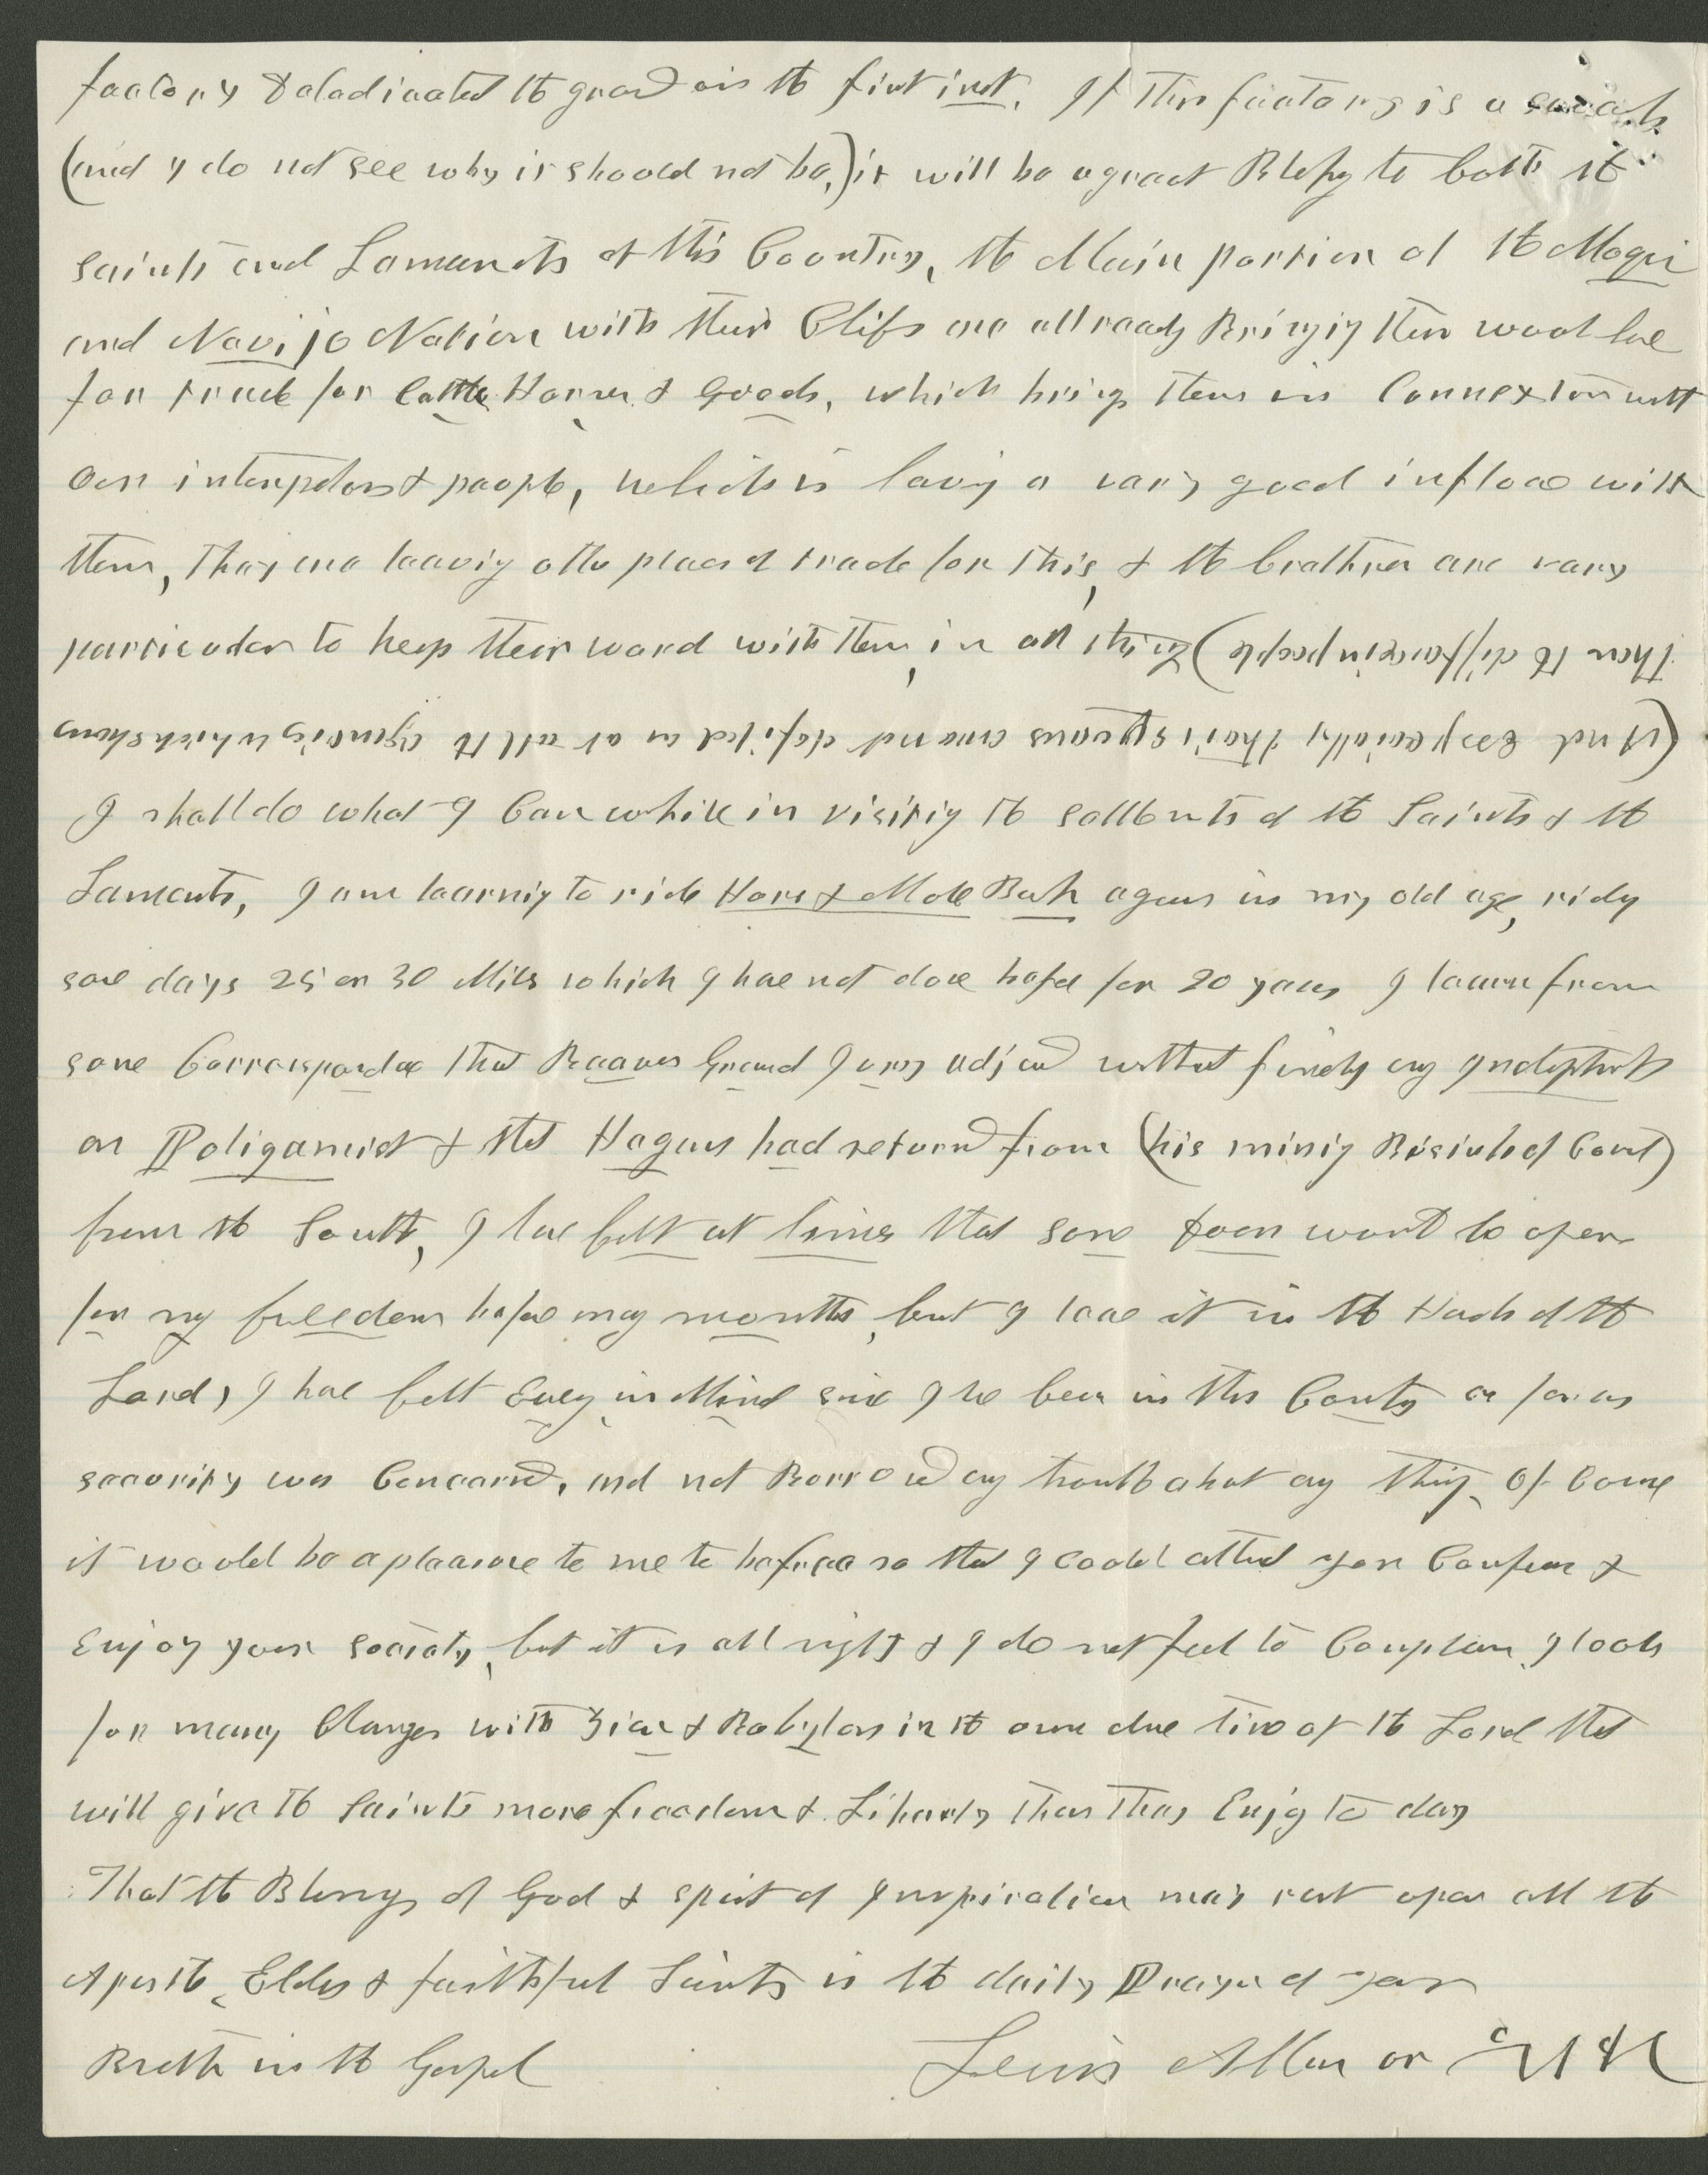 factory & dedicated the ground on the first inst. If this factory is a success
(and I do not see why it should not be,) it will be a great Blessing to both the
Saints and Lamanites of this Country, the Main portion of the Moqui
and Navijo Nation with their Chifs are allready Bringing their wool here
for trade for Cattle Horses & Goods, which brings them in Connexion with
our interpeters & people, which is having a very good influence with
them, They are leaving other places of trade for this, & the brethren are very
particular to keep their word with them in all things
(And Especially their squaws are not defiled as at all the agencies which shows
them the difference in people)
I shall do what I Can while in visiting the settlements of the Saints & the
Lamanites, I am learning to ride Horse & Mule Back again in my old age, riding
some days 25 or 30 Miles which I have not done before for 20 years I learn from
some Correspondence that Reaves Grand Jury adjourned without finding any Indictments
on Poligamist & that Hagans had returned from (his mining Business of Court)
from the South, I have felt at times that some door would be open
for my freedom before many months, but I leave it in the Hands of the
Lord, I have felt Easy in Mind since I have been in this County as far as
security was Concerned, and not Borrowed any trouble about any thing, Of Course
it would be a pleasure to me to be free so that I could attend your Conference &
Enjoy your society, but it is all right & I do not feel to Complain, I look
for many Changes with Zion & Babylon in the own due time of the Lord that
will give the Saints more freedom & Liberty than they Enjoy to day
That the Blessings of God & spirit of Inspiration may rest upon all the
Apostles, Elders & faithful Saints is the daily Prayer of your
Brother in the Gospel Lewis Allen or